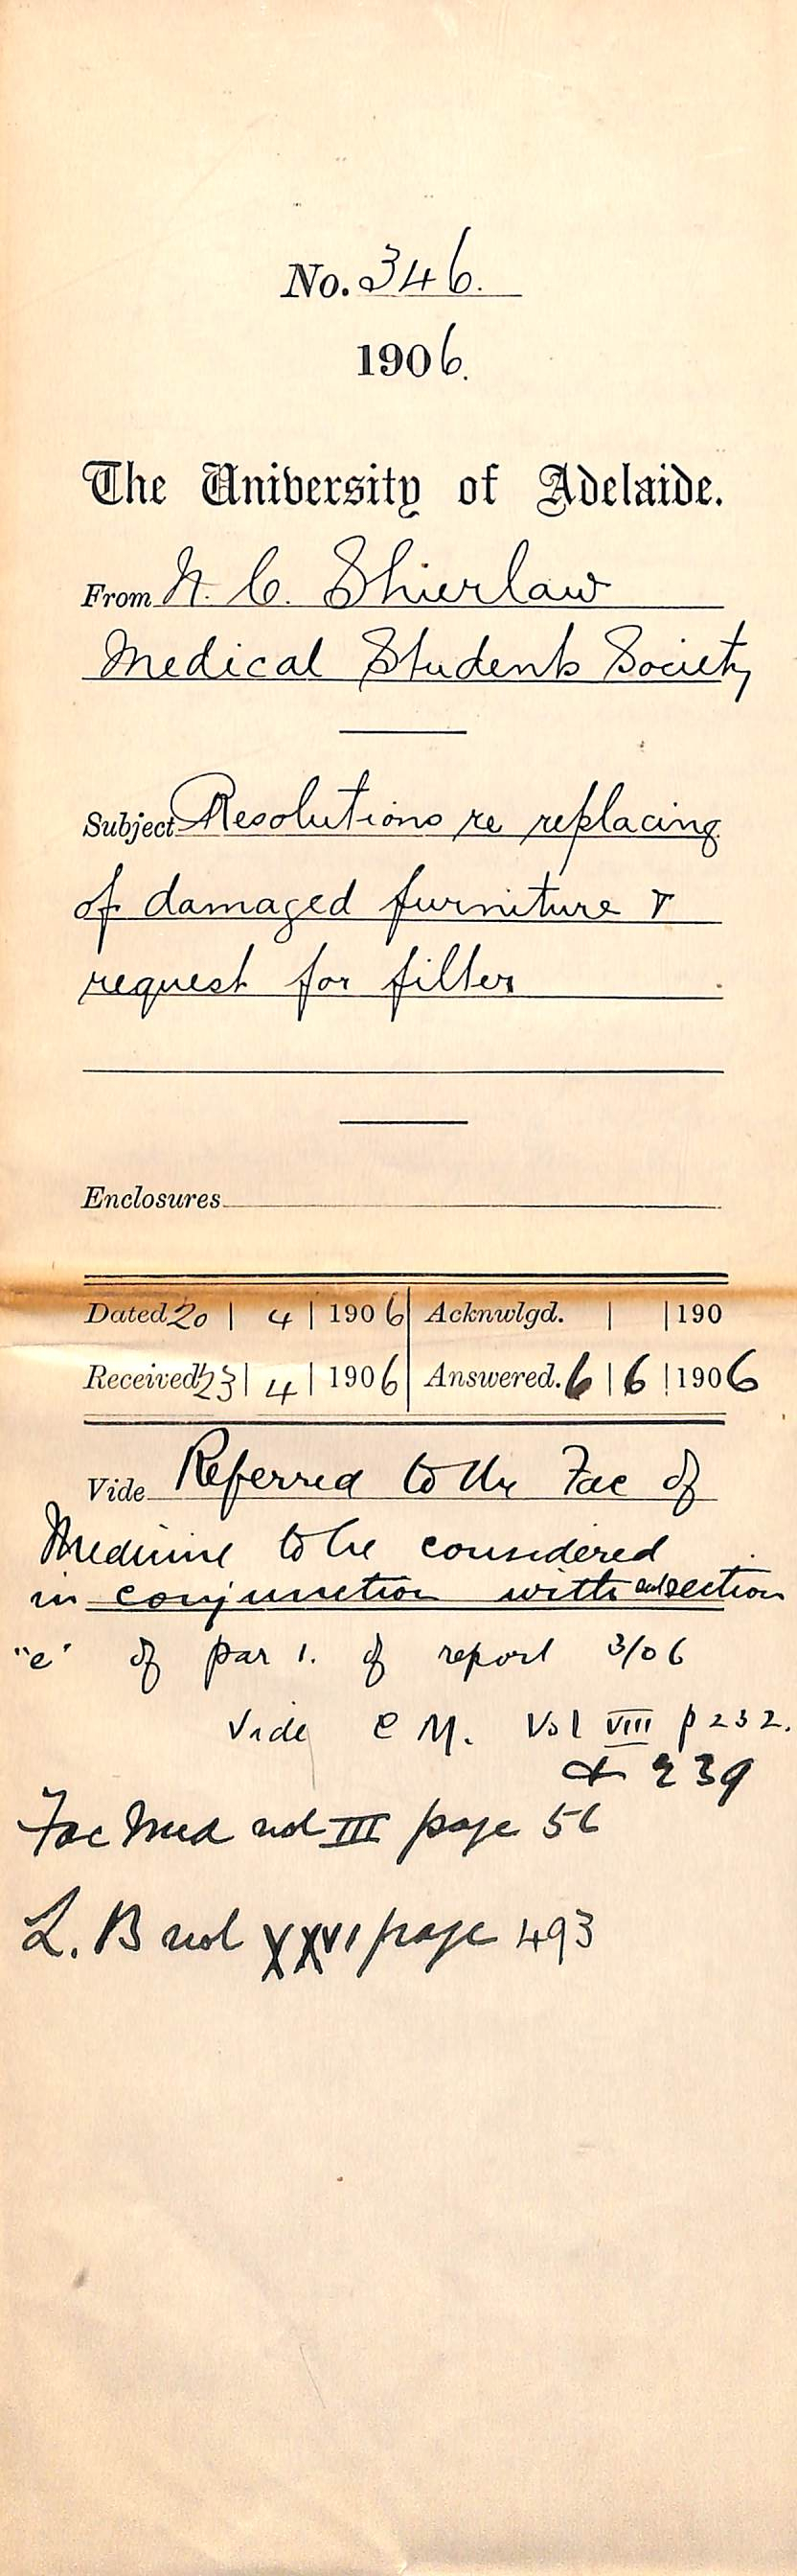 No. 346.
1906.
The University of Adelaide.
From N. C. Shierlaw
Medical Students Society
Subject Resolutions re replacing
of damaged furniture &
request for filter
Enclosures
Dated 20 | 4 | 1906 Acknwlgd. | | 190
Received 23 | 4 | 1906 Answered. 6 | 6 | 1906
Vide Referred to the Fac of
Medicine to be considered
in conjunction with subsection
"e" of par 1. of report 3/06
Vide C M. Vol VIII p 232.
& 239
Fac Med vol III page 56
L. B vol XXVI page 493